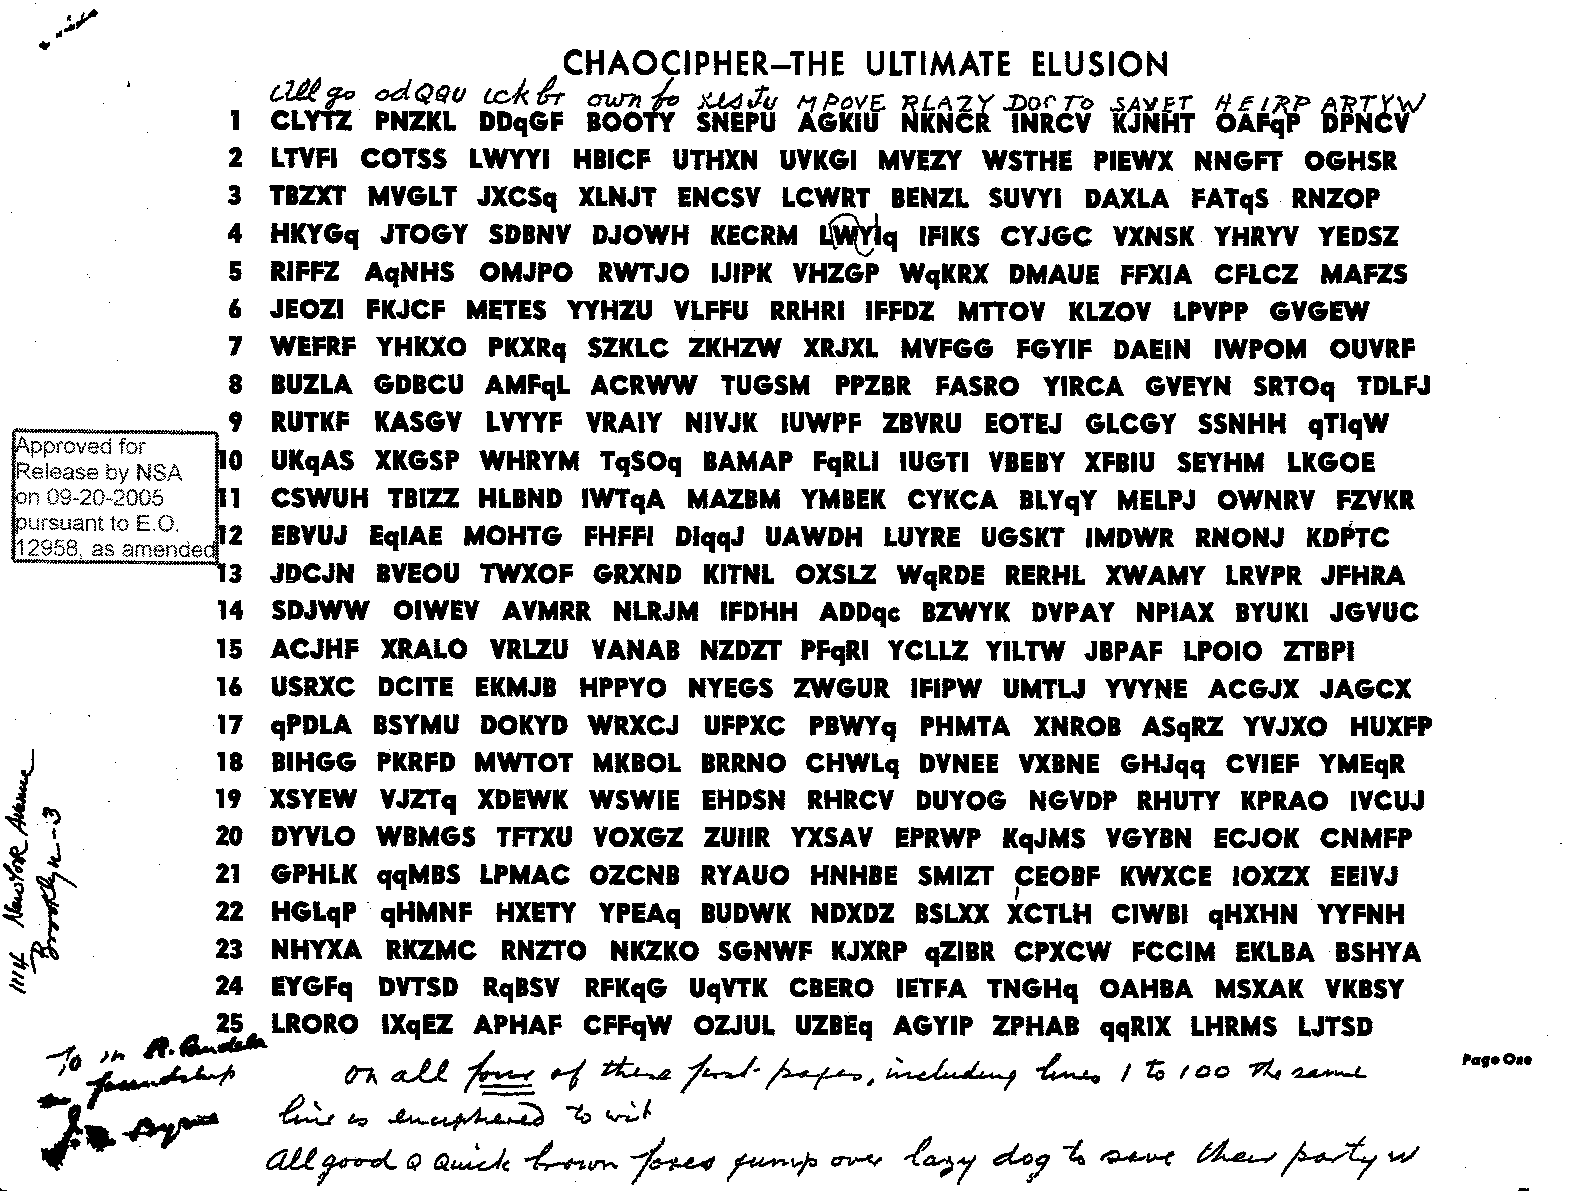 CHAOCIPHER—THE ULTIMATE ELUSION
All go odQQU ick br own fo xesJu MPOVE RLAZY DOGTO SAVET HEIRP ARTYW
1 CLYTZ PNZKL DDqGF BOOTY SNEPU AGKIU NKNCR INRCV KJNHT OAFqP DPNCV
2 LTVFI COTSS LWYYI HBICF UTHXN UVKGI MVEZY WSTHE PIEWX NNGFT OGHSR
3 TBZXT MVGLT JXCSq XLNJT ENCSV LCWRT BENZL SUVYI DAXLA FATqS RNZOP
4 HKYGq JTOGY SDBNV DJOWH KECRM LWYIq IFIKS CYJGC VXNSK YHRYV YEDSZ
5 RIFFZ AqNHS OMJPO RWTJO IJIPK VHZGP WqKRX DMAUE FFXIA CFLCZ MAFZS
6 JEOZI FKJCF METES YYHZU VLFFU RRHRI IFFDZ MTTOV KLZOV LPVPP GVGEW
7 WEFRF YHKXO PKXRq SZKLC ZKHZW XRJXL MVFGG FGYIF DAEIN IWPOM OUVRF
8 BUZLA GDBCU AMFqL ACRWW TUGSM PPZBR FASRO YIRCA GVEYN SRTOq TDLFJ
9 RUTKF KASGV LVYYF VRAIY NIVJK IUWPF ZBVRU EOTEJ GLCGY SSNHH qTIqW
Approved for
Release by NSA
on 09-20-2005
pursuant to E.O.
12958, as amended
10 UKqAS XKGSP WHRYM TqSOq BAMAP FqRLI IUGTI VBEBY XFBIU SEYHM LKGOE
11 CSWUH TBIZZ HLBND IWTqA MAZBM YMBEK CYKCA BLYqY MELPJ OWNRV FZVKR
12 EBVUJ EqIAE MOHTG FHFFI DIqqJ UAWDH LUYRE UGSKT IMDWR RNONJ KDPTC
13 JDCJN BVEOU TWXOF GRXND KITNL OXSLZ WqRDE RERHL XWAMY LRVPR JFHRA
14 SDJWW OIWEV AVMRR NLRJM IFDHH ADDqc BZWYK DVPAY NPIAX BYUKI JGVUC
15 ACJHF XRALO VRLZU VANAB NZDZT PFqRI YCLLZ YILTW JBPAF LPOIO ZTBPI
16 USRXC DCITE EKMJB HPPYO NYEGS ZWGUR IFIPW UMTLJ YVYNE ACGJX JAGCX
17 qPDLA BSYMU DOKYD WRXCJ UFPXC PBWYq PHMTA XNROB ASqRZ YVJXO HUXFP
18 BIHGG PKRFD MWTOT MKBOL BRRNO CHWLq DVNEE VXBNE GHJqq CVIEF YMEqR
19 XSYEW VJZTq XDEWK WSWIE EHDSN RHRCV DUYOG NGVDP RHUTY KPRAO IVCUJ
20 DYVLO WBMGS TFTXU VOXGZ ZUIIR YXSAV EPRWP KqJMS VGYBN ECJOK CNMFP
21 GPHLK qqMBS LPMAC OZCNB RYAUO HNHBE SMIZT CEOBF KWXCE IOXZX EEIVJ
22 HGLqP qHMNF HXETY YPEAq BUDWK NDXDZ BSLXX XCTLH CIWBI qHXHN YYFNH
23 NHYXA RKZMC RNZTO NKZKO SGNWF KJXRP qZIBR CPXCW FCCIM EKLBA BSHYA
24 EYGFq DVTSD RqBSV RFKqG UqVTK CBERO IETFA TNGHq OAHBA MSXAK VKBSY
25 LRORO IXqEZ APHAF CFFqW OZJUL UZBEq AGYIP ZPHAB qqRIX LHRMS LJTSD
1114 Newyork Avenue
Brooklyn-3
To Mr R.
friendship
Byrne
Page One
On all four of these first pages, including lines 1 to 100 the same
line is enciphered to wit
All good Q Quick brown foxes jump over lazy dog to save their party w